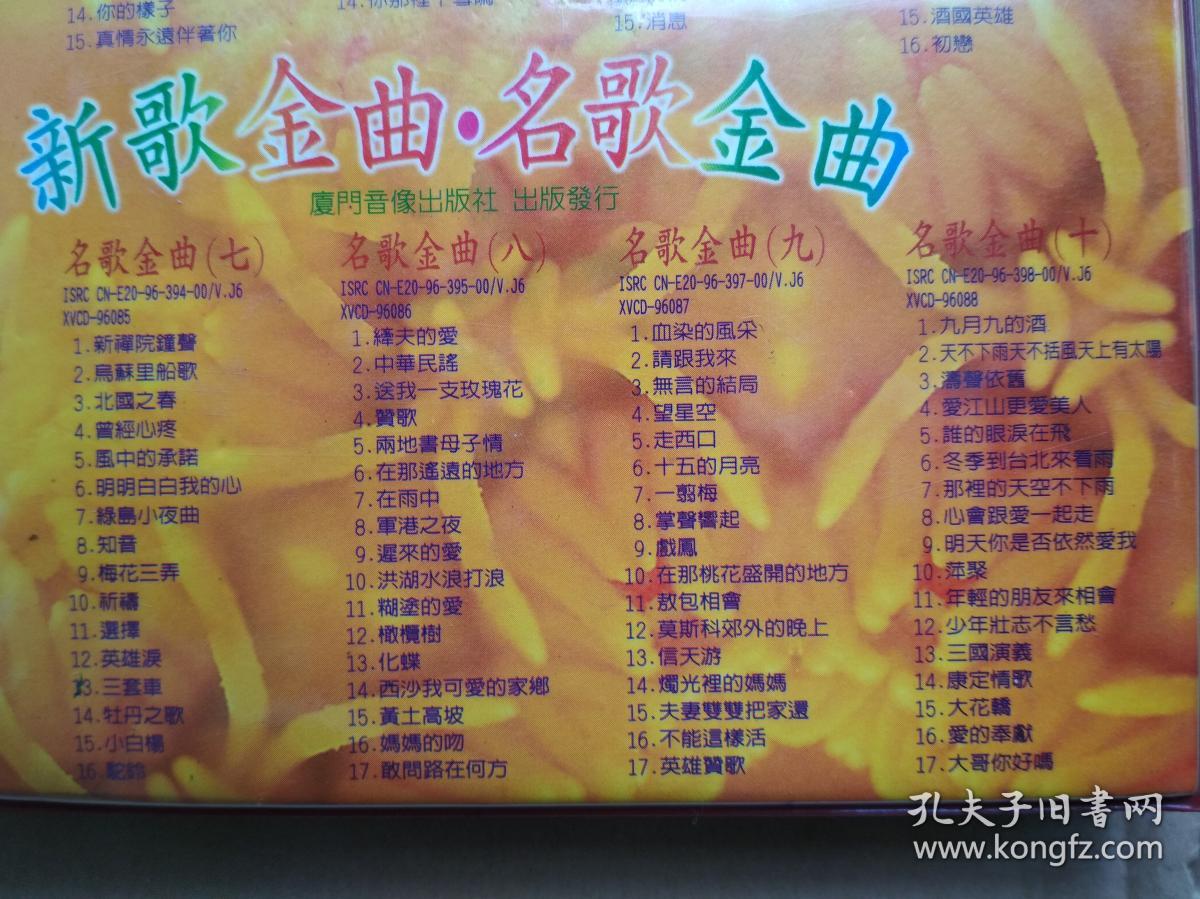 14.你的樣子
15.真情永遠伴著你
15.消息
15.酒國英雄
16.初戀
新歌金曲·名歌金曲
廈門音像出版社 出版發行
名歌金曲(七)
ISRC CN-E20-96-394-00/V.J6
XVCD-96085
1.新禪院鐘聲
2.烏蘇里船歌
3.北國之春
4.曾經心疼
5.風中的承諾
6.明明白白我的心
7.綠島小夜曲
8.知音
9.梅花三弄
10.祈禱
11.選擇
12.英雄淚
13.三套車
14.牡丹之歌
15.小白楊
16.駝鈴
名歌金曲(八)
ISRC CN-E20-96-395-00/V.J6
XVCD-96086
1.縴夫的愛
2.中華民謠
3.送我一支玫瑰花
4.贊歌
5.兩地書母子情
6.在那遙遠的地方
7.在雨中
8.軍港之夜
9.遲來的愛
10.洪湖水浪打浪
11.糊塗的愛
12.橄欖樹
13.化蝶
14.西沙我可愛的家鄉
15.黃土高坡
16.媽媽的吻
17.敢問路在何方
名歌金曲(九)
ISRC CN-E20-96-397-00/V.J6
XVCD-96087
1.血染的風采
2.請跟我來
3.無言的結局
4.望星空
5.走西口
6.十五的月亮
7.一翦梅
8.掌聲響起
9.戲鳳
10.在那桃花盛開的地方
11.敖包相會
12.莫斯科郊外的晚上
13.信天游
14.燭光裡的媽媽
15.夫妻雙雙把家還
16.不能這樣活
17.英雄贊歌
名歌金曲(十)
ISRC CN-E20-96-398-00/V.J6
XVCD-96088
1.九月九的酒
2.天不下雨天不括風天上有太陽
3.濤聲依舊
4.愛江山更愛美人
5.誰的眼淚在飛
6.冬季到台北來看雨
7.那裡的天空不下雨
8.心會跟愛一起走
9.明天你是否依然愛我
10.萍聚
11.年輕的朋友來相會
12.少年壯志不言愁
13.三國演義
14.康定情歌
15.大花轎
16.愛的奉獻
17.大哥你好嗎
孔夫子旧书网
www.kongfz.com